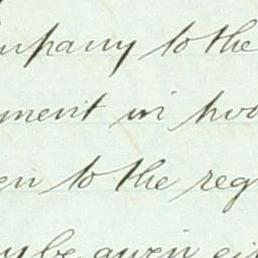 mpany to the
ment in
en to the reg
y be given